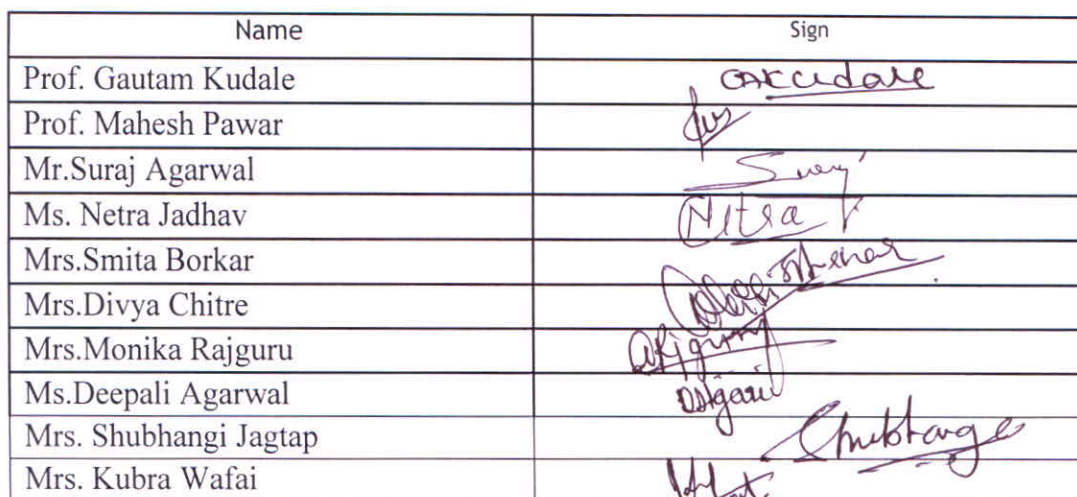 Name Sign
Prof. Gautam Kudale GAKudale
Prof. Mahesh Pawar
Mr.Suraj Agarwal Suraj
Ms. Netra Jadhav Netra
Mrs.Smita Borkar
Mrs.Divya Chitre
Mrs.Monika Rajguru
Ms.Deepali Agarwal
Mrs. Shubhangi Jagtap Shubhangi
Mrs. Kubra Wafai